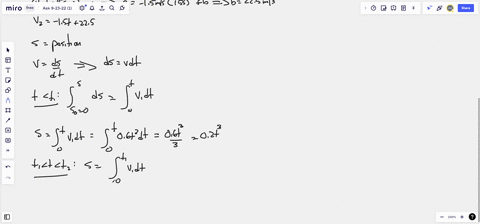 miro free Ask 9-23-22 (1) Share
V₂ = -1.5t + 22.5
s = position
V = ds/dt ⇒ ds = vdt
t < t₁: ∫_{s₀=0}^{s} ds = ∫_0^t V₁dt
s = ∫_0^t V₁dt = ∫_0^t 0.6t²dt = 0.6t³/3 = 0.2t³
t₁ < t < t₂: s = ∫_0^{t₁} V₁dt